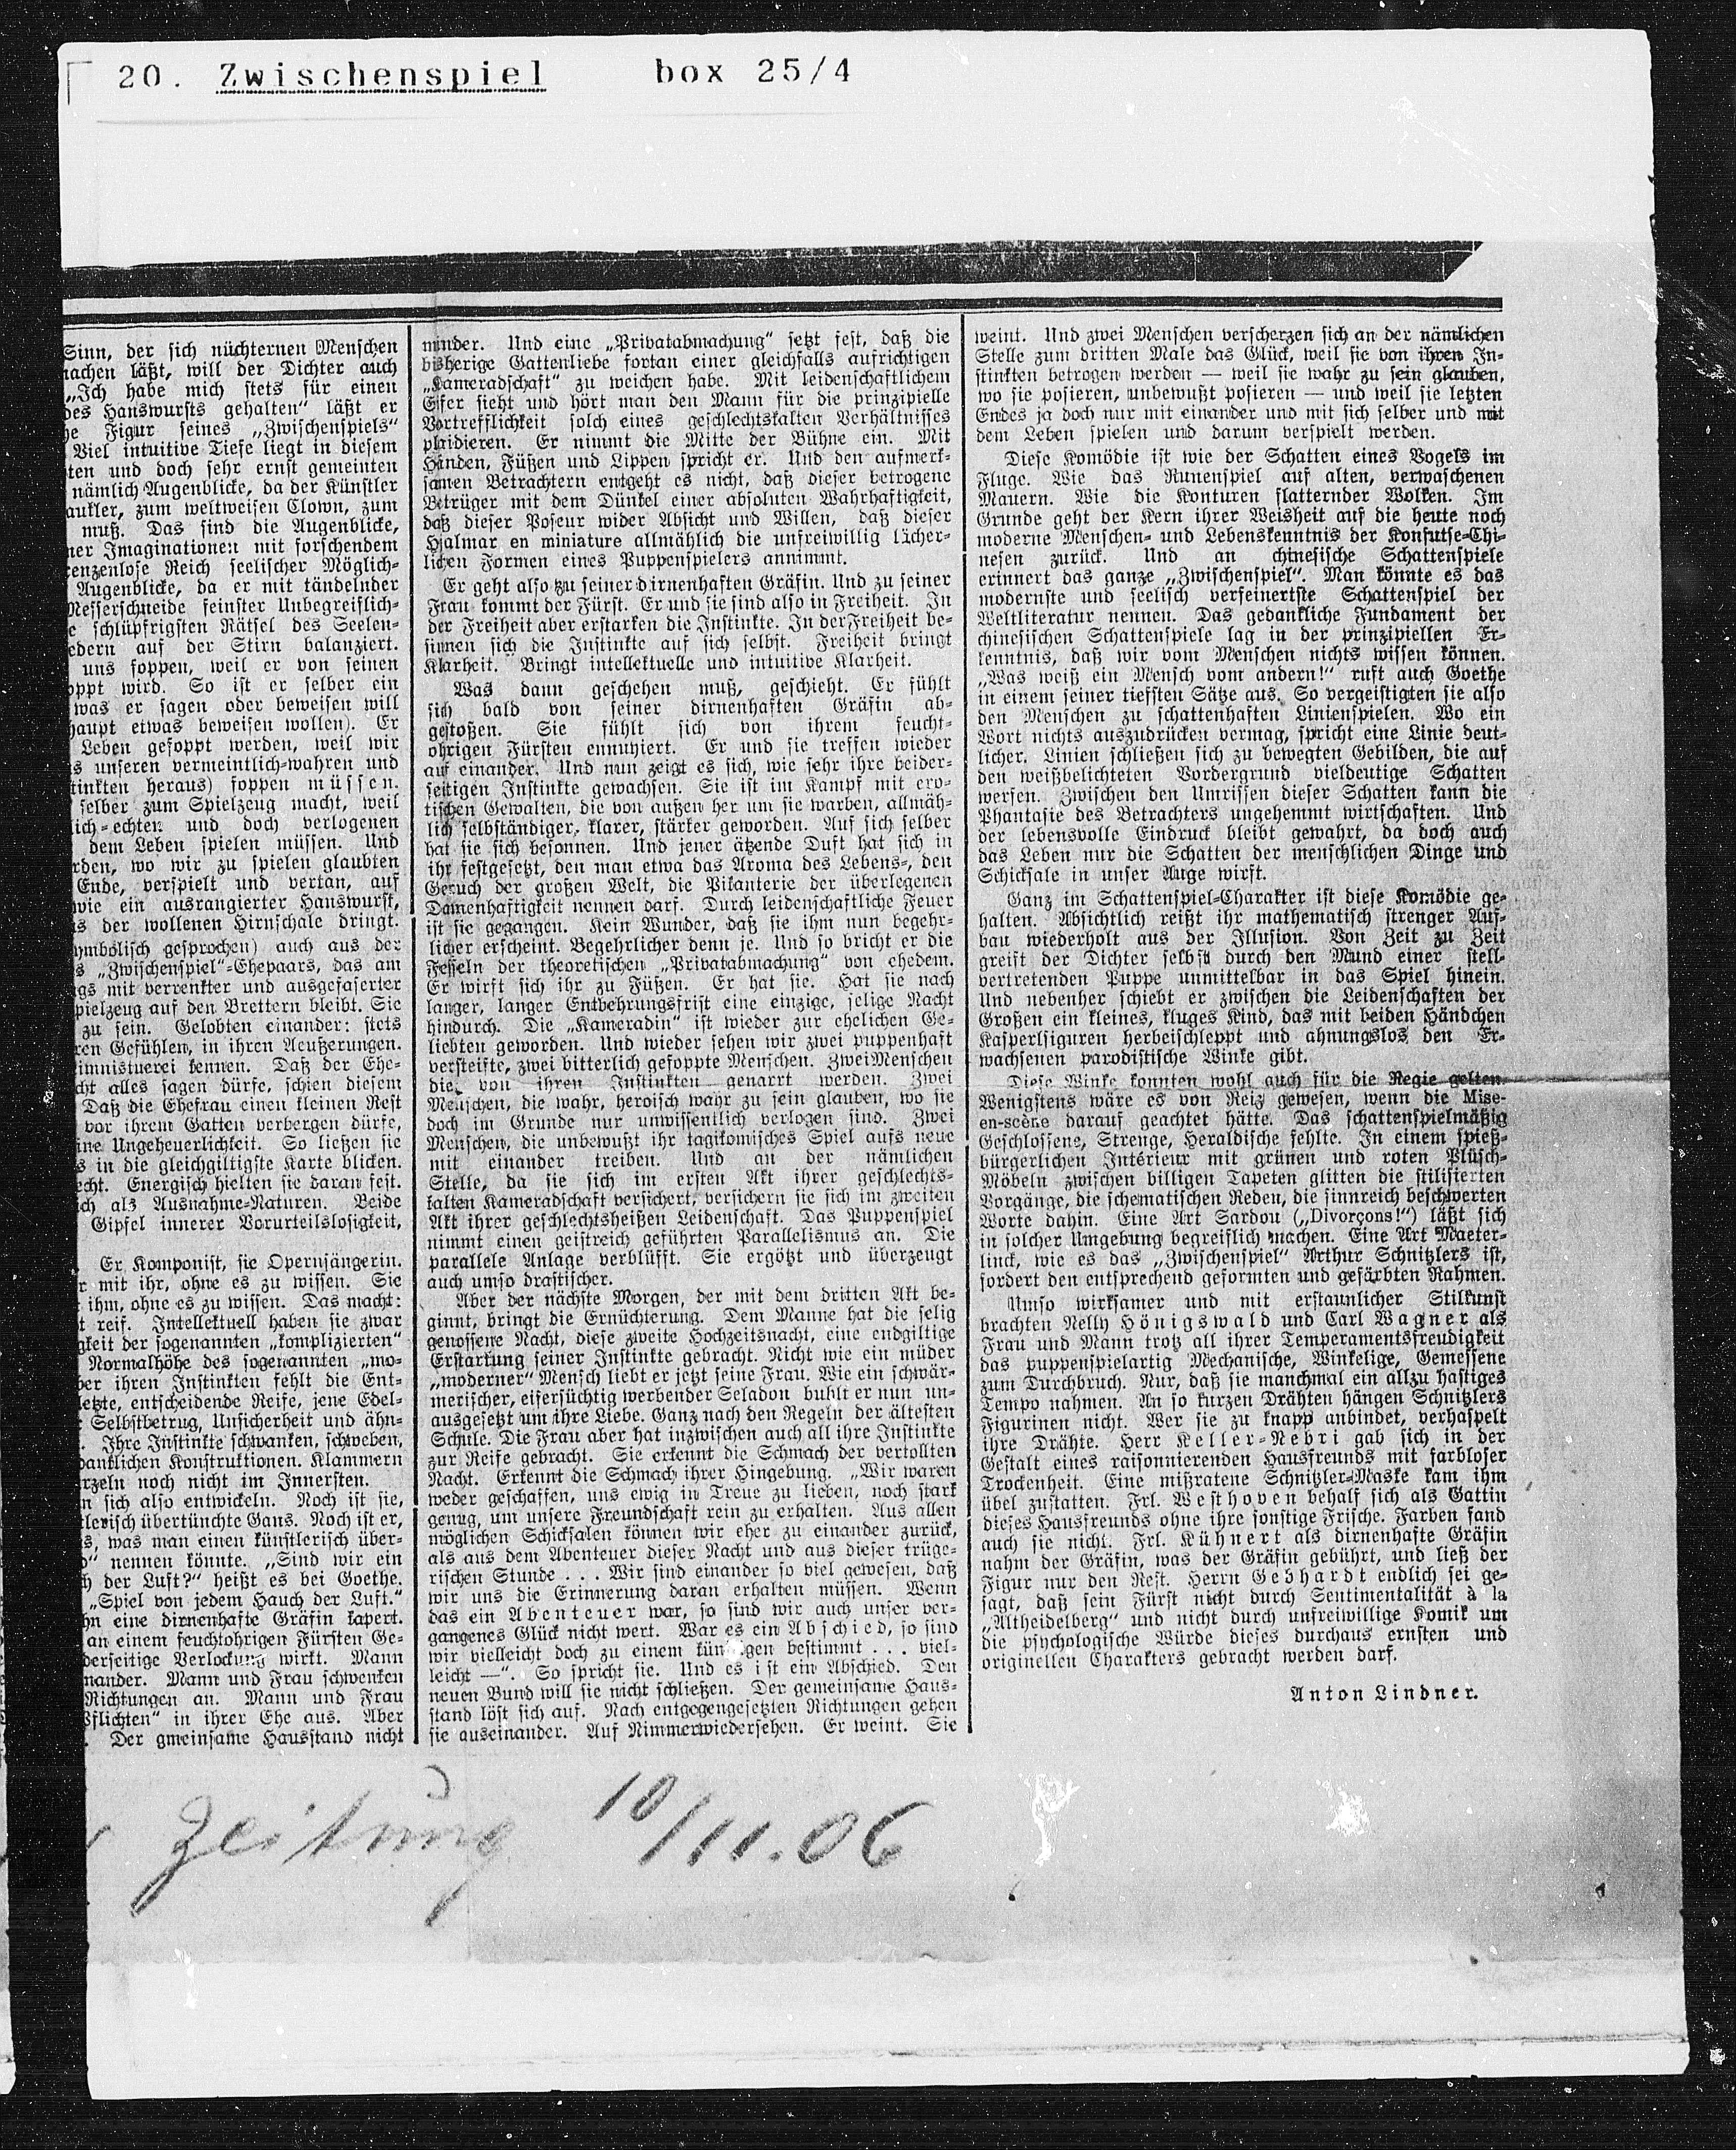 20. Zwischenspiel box 25/4
Sinn, der sich nüchternen Menschen
machen läßt, will der Dichter auch
„Ich habe mich stets für einen
des Hanswursts gehalten“ läßt er
Figur seines „Zwischenspiels“
Viel intuitive Tiefe liegt in diesem
ten und doch sehr ernst gemeinten
nämlich Augenblicke, da der Künstler
aukler, zum weltweisen Clown, zum
muß. Das sind die Augenblicke,
ner Imaginationen mit forschendem
renzenlose Reich seelischer Möglich-
Augenblicke, da er mit tändelnder
Messerschneide feinster Unbegreiflich-
schlüpfrigsten Rätsel des Seelen-
edern auf der Stirn balanziert.
uns foppen, weil er von seinen
oppt wird. So ist er selber ein
was er sagen oder beweisen will
haupt etwas beweisen wollen). Er
Leben gefoppt werden, weil wir
s unseren vermeintlich-wahren und
tinkten heraus) foppen müssen.
selber zum Spielzeug macht, weil
lich-echten und doch verlogenen
dem Leben spielen müssen. Und
rden, wo wir zu spielen glaubten
Ende, verspielt und vertan, auf
wie ein ausrangierter Hanswurst,
s der wollenen Hirnschale dringt.
ymbolisch gesprochen) auch aus der
s „Zwischenspiel“-Ehepaars, das am
gs mit verrenkter und ausgefaserter
pielzeug auf den Brettern bleibt. Sie
zu sein. Gelobten einander: stets
ren Gefühlen, in ihren Aeußerungen.
imnistuerei kennen. Daß der Ehe-
cht alles sagen dürfe, schien diesem
Daß die Ehefrau einen kleinen Rest
vor ihrem Gatten verbergen dürfe,
ine Ungeheuerlichkeit. So ließen sie
s in die gleichgiltigste Karte blicken.
echt. Energisch hielten sie daran fest.
ich als Ausnahme-Naturen. Beide
Gipfel innerer Vorurteilslosigkeit,
Er Komponist, sie Opernsängerin.
r mit ihr, ohne es zu wissen. Sie
ihm, ohne es zu wissen. Das macht:
t reif. Intellektuell haben sie zwar
gkeit der sogenannten „komplizierten“
Normalhöhe des sogenannten „mo-
ber ihren Instinkten fehlt die Ent-
letzte, entscheidende Reife, jene Edel-
Selbstbetrug, Unsicherheit und ähn-
. Ihre Instinkte schwanken, schweben,
danklichen Konstruktionen. Klammern
rzeln noch nicht im Innersten.
n sich also entwickeln. Noch ist sie,
lerisch übertünchte Gans. Noch ist er,
s, was man einen künstlerisch über-
“ nennen könnte. „Sind wir ein
h der Luft?“ heißt es bei Goethe.
„Spiel von jedem Hauch der Luft.“
hn eine dirnenhafte Gräfin kapert.
an einem feuchtohrigen Fürsten Ge-
derseitige Verlockung wirkt. Mann
nander. Mann und Frau schwenken
Richtungen an. Mann und Frau
Pflichten“ in ihrer Ehe aus. Aber
. Der gmeinsame Hausstand nicht
minder. Und eine „Privatabmachung“ setzt fest, daß die
bisherige Gattenliebe fortan einer gleichfalls aufrichtigen
„Kameradschaft“ zu weichen habe. Mit leidenschaftlichem
Eifer sieht und hört man den Mann für die prinzipielle
Vortrefflichkeit solch eines geschlechtskalten Verhältnisses
plaidieren. Er nimmt die Mitte der Bühne ein. Mit
Händen, Füßen und Lippen spricht er. Und den aufmerk-
samen Betrachtern entgeht es nicht, daß dieser betrogene
Betrüger mit dem Dünkel einer absoluten Wahrhaftigkeit,
daß dieser Poseur wider Absicht und Willen, daß dieser
Hjalmar en miniature allmählich die unfreiwillig lächer-
lichen Formen eines Puppenspielers annimmt.
Er geht also zu seiner dirnenhaften Gräfin. Und zu seiner
Frau kommt der Fürst. Er und sie sind also in Freiheit. In
der Freiheit aber erstarken die Instinkte. In der Freiheit be-
sinnen sich die Instinkte auf sich selbst. Freiheit bringt
Klarheit. Bringt intellektuelle und intuitive Klarheit.
Was dann geschehen muß, geschieht. Er fühlt
sich bald von seiner dirnenhaften Gräfin ab-
gestoßen. Sie fühlt sich von ihrem feucht-
ohrigen Fürsten ennuyiert. Er und sie treffen wieder
auf einander. Und nun zeigt es sich, wie sehr ihre beider-
seitigen Instinkte gewachsen. Sie ist im Kampf mit ero-
tischen Gewalten, die von außen her um sie warben, allmäh-
lich selbständiger, klarer, stärker geworden. Auf sich selber
hat sie sich besonnen. Und jener ätzende Duft hat sich in
ihr festgesetzt, den man etwa das Aroma des Lebens-, den
Geruch der großen Welt, die Pikanterie der überlegenen
Damenhaftigkeit nennen darf. Durch leidenschaftliche Feuer
ist sie gegangen. Kein Wunder, daß sie ihm nun begehr-
licher erscheint. Begehrlicher denn je. Und so bricht er die
Fesseln der theoretischen „Privatabmachung“ von ehedem.
Er wirft sich ihr zu Füßen. Er hat sie. Hat sie nach
langer, langer Entbehrungsfrist eine einzige, selige Nacht
hindurch. Die „Kameradin“ ist wieder zur ehelichen Ge-
liebten geworden. Und wieder sehen wir zwei puppenhaft
versteifte, zwei bitterlich gefoppte Menschen. Zwei Menschen
die von ihren Instinkten genarrt werden. Zwei
Menschen, die wahr, heroisch wahr zu sein glauben, wo sie
doch im Grunde nur unwissentlich verlogen sind. Zwei
Menschen, die unbewußt ihr tagikomisches Spiel aufs neue
mit einander treiben. Und an der nämlichen
Stelle, da sie sich im ersten Akt ihrer geschlechts-
kalten Kameradschaft versichert, versichern sie sich im zweiten
Akt ihrer geschlechtsheißen Leidenschaft. Das Puppenspiel
nimmt einen geistreich geführten Parallelismus an. Die
parallele Anlage verblüfft. Sie ergötzt und überzeugt
auch umso drastischer.
Aber der nächste Morgen, der mit dem dritten Akt be-
ginnt, bringt die Ernüchterung. Dem Manne hat die selig
genossene Nacht, diese zweite Hochzeitsnacht, eine endgiltige
Erstarkung seiner Instinkte gebracht. Nicht wie ein müder
„moderner“ Mensch liebt er jetzt seine Frau. Wie ein schwär-
merischer, eifersüchtig werbender Seladon buhlt er nun un-
ausgesetzt um ihre Liebe. Ganz nach den Regeln der ältesten
Schule. Die Frau aber hat inzwischen auch all ihre Instinkte
zur Reife gebracht. Sie erkennt die Schmach der vertollten
Nacht. Erkennt die Schmach ihrer Hingebung. „Wir waren
weder geschaffen, uns ewig in Treue zu lieben, noch stark
genug, um unsere Freundschaft rein zu erhalten. Aus allen
möglichen Schicksalen können wir eher zu einander zurück,
als aus dem Abenteuer dieser Nacht und aus dieser trüge-
rischen Stunde . . . Wir sind einander so viel gewesen, daß
wir uns die Erinnerung daran erhalten müssen. Wenn
das ein Abenteuer war, so sind wir auch unser ver-
gangenes Glück nicht wert. War es ein Abschied, so sind
wir vielleicht doch zu einem kün gen bestimmt . . viel-
leicht —“. So spricht sie. Und es ist ein Abschied. Den
neuen Bund will sie nicht schließen. Der gemeinsame Haus-
stand löst sich auf. Nach entgegengesetzten Richtungen gehen
sie auseinander. Auf Nimmerwiedersehen. Er weint. Sie
weint. Und zwei Menschen verscherzen sich an der nämlichen
Stelle zum dritten Male das Glück, weil sie von ihren In-
stinkten betrogen werden — weil sie wahr zu sein glauben,
wo sie posieren, unbewußt posieren — und weil sie letzten
Endes ja doch nur mit einander und mit sich selber und mit
dem Leben spielen und darum verspielt werden.
Diese Komödie ist wie der Schatten eines Vogels im
Fluge. Wie das Runenspiel auf alten, verwaschenen
Mauern. Wie die Konturen flatternder Wolken. Im
Grunde geht der Kern ihrer Weisheit auf die heute noch
moderne Menschen- und Lebenskenntnis der Konfutse-Chi-
nesen zurück. Und an chinesische Schattenspiele
erinnert das ganze „Zwischenspiel“. Man könnte es das
modernste und seelisch verfeinertste Schattenspiel der
Weltliteratur nennen. Das gedankliche Fundament der
chinesischen Schattenspiele lag in der prinzipiellen Er-
kenntnis, daß wir vom Menschen nichts wissen können.
„Was weiß ein Mensch vom andern!“ ruft auch Goethe
in einem seiner tiefsten Sätze aus. So vergeistigten sie also
den Menschen zu schattenhaften Linienspielen. Wo ein
Wort nichts auszudrücken vermag, spricht eine Linie deut-
licher. Linien schließen sich zu bewegten Gebilden, die auf
den weißbelichteten Vordergrund vieldeutige Schatten
werfen. Zwischen den Umrissen dieser Schatten kann die
Phantasie des Betrachters ungehemmt wirtschaften. Und
der lebensvolle Eindruck bleibt gewahrt, da doch auch
das Leben nur die Schatten der menschlichen Dinge und
Schicksale in unser Auge wirft.
Ganz im Schattenspiel-Charakter ist diese Komödie ge-
halten. Absichtlich reißt ihr mathematisch strenger Auf-
bau wiederholt aus der Illusion. Von Zeit zu Zeit
greift der Dichter selbst durch den Mund einer stell-
vertretenden Puppe unmittelbar in das Spiel hinein.
Und nebenher schiebt er zwischen die Leidenschaften der
Großen ein kleines, kluges Kind, das mit beiden Händchen
Kasperlfiguren herbeischleppt und ahnungslos den Er-
wachsenen parodistische Winke gibt.
Diese Winke konnten wohl auch für die Regie gelten.
Wenigstens wäre es von Reiz gewesen, wenn die Mise-
en-scène darauf geachtet hätte. Das schattenspielmäßig
Geschlossene, Strenge, Heraldische fehlte. In einem spieß-
bürgerlichen Intérieur mit grünen und roten Plüsch-
Möbeln zwischen billigen Tapeten glitten die stilisierten
Vorgänge, die schematischen Reden, die sinnreich beschwerten
Worte dahin. Eine Art Sardou („Divorçons!“) läßt sich
in solcher Umgebung begreiflich machen. Eine Art Maeter-
linck, wie es das „Zwischenspiel“ Arthur Schnitzlers ist,
fordert den entsprechend geformten und gefärbten Rahmen.
Umso wirksamer und mit erstaunlicher Stilkunst
brachten Nelly Hönigswald und Carl Wagner als
Frau und Mann trotz all ihrer Temperamentsfreudigkeit
das puppenspielartig Mechanische, Winkelige, Gemessene
zum Durchbruch. Nur, daß sie manchmal ein allzu hastiges
Tempo nahmen. An so kurzen Drähten hängen Schnitzlers
Figurinen nicht. Wer sie zu knapp anbindet, verhaspelt
ihre Drähte. Herr Keller-Nebri gab sich in der
Gestalt eines raisonnierenden Hausfreunds mit farbloser
Trockenheit. Eine mißratene Schnitzler-Maske kam ihm
übel zustatten. Frl. Westhoven behalf sich als Gattin
dieses Hausfreunds ohne ihre sonstige Frische. Farben fand
auch sie nicht. Frl. Kühnert als dirnenhafte Gräfin
nahm der Gräfin, was der Gräfin gebührt, und ließ der
Figur nur den Rest. Herrn Gebhardt endlich sei ge-
sagt, daß sein Fürst nicht durch Sentimentalität à la
„Altheidelberg“ und nicht durch unfreiwillige Komik um
die psychologische Würde dieses durchaus ernsten und
originellen Charakters gebracht werden darf.
Anton Lindner.
Zeitung 10/11.06